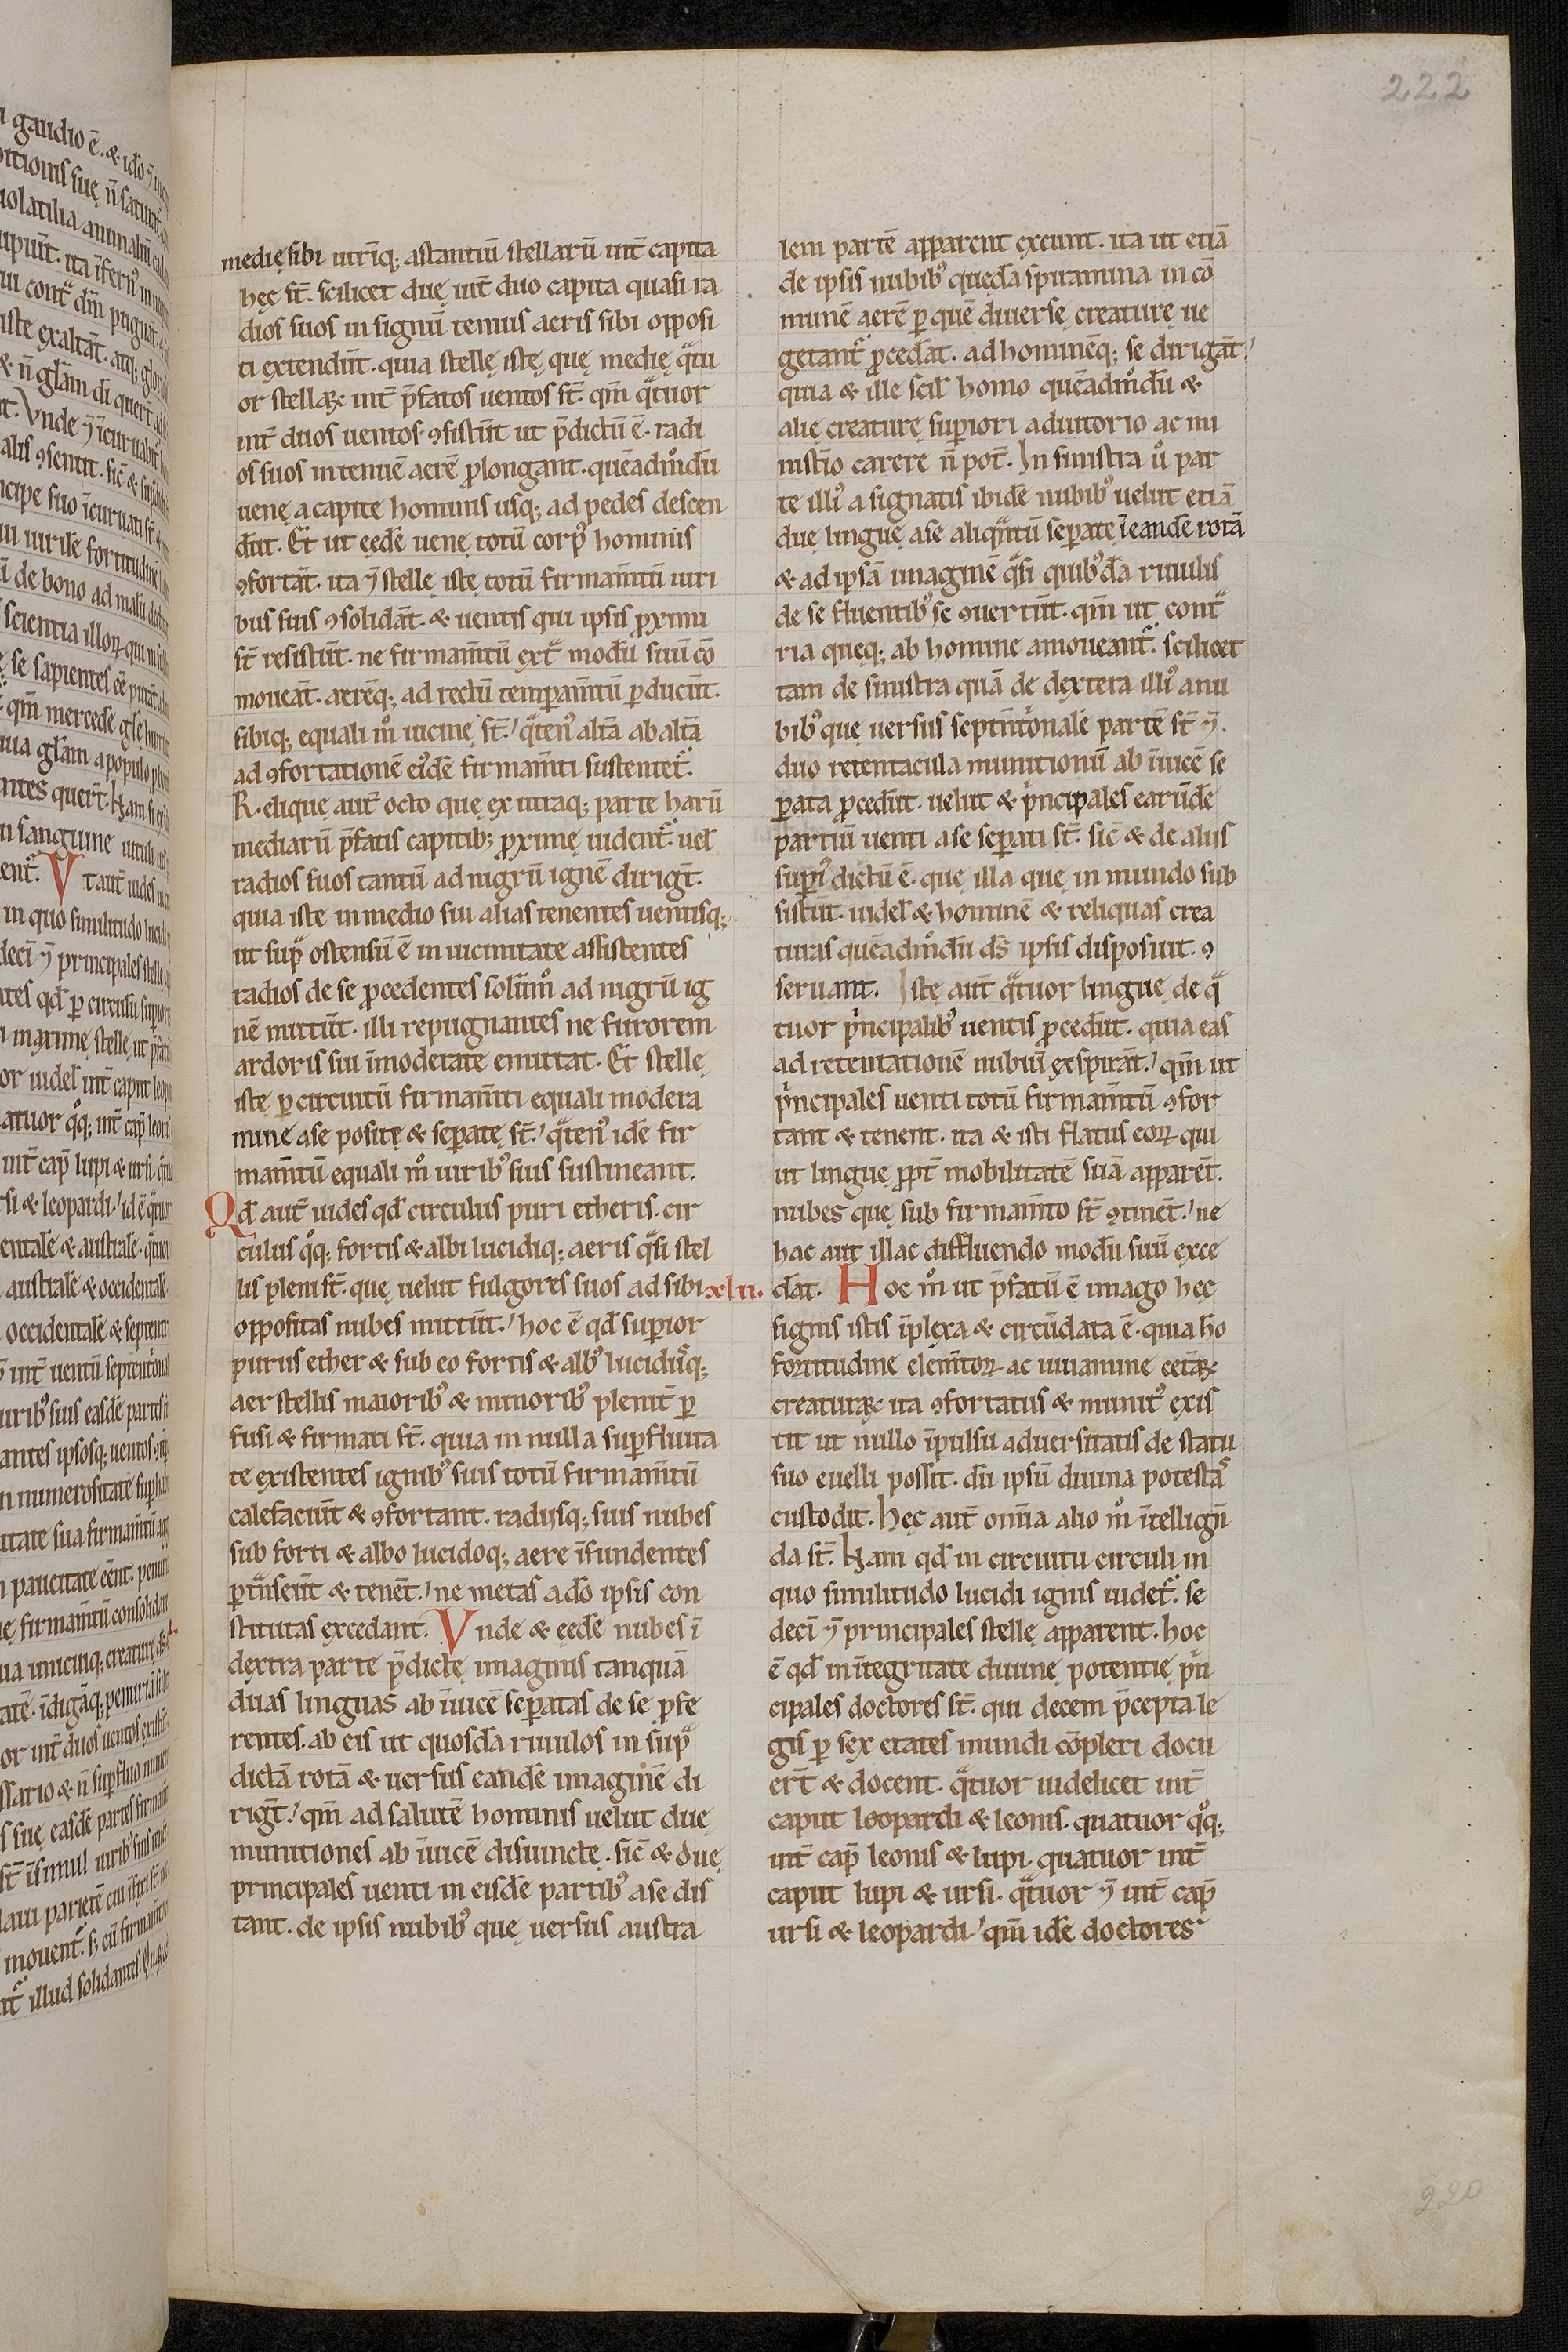 222
medię sibi utrīq; astantiū stellarū int̄ capita
hęc st̄. scilicet duę int̄ duo capita quasi ra
dios suos in signū tenuis aeris sibi opposi
ti extendūt. quia stellę istę quę medię q̄tu
or stellaꝝ int̄ p̄fatos uentos st̄. qm̄ q̄tuor
int̄ duos uentos ꝯsistūt ut p̄dictū ē. radi
os suos in tenuē aerē ꝓlongant. quēadm̊dū
uenę a capite hominis usq; ad pedes descen
dūt. Et ut eędē uenę totū corpꝰ hominis
ꝯfortāt. ita ⁊̄ stellę istę totū firmam̄tū uiri
bus suis ꝯsolidāt. & uentis qui ipsis ꝓximi
st̄ resistūt. ne firmam̄tū ext̄ modū suū cō
moueāt. aerēq; ad rectū temꝑam̄tū ꝑducūt.
sibiq; equali m̊ uicinę st̄.' q̄tenꝰ altā ab altā
ad ꝯfortationē eiꝰdē firmam̄ti sustentet᷑.
Reliquę aut̄ octo quę ex utraq; parte harū
mediarū p̄fatis capitib; ꝓximę uident᷑. uel̄
radios suos tantū ad nigrū ignē dirigt̄.
quia istę in medio sui alias tenentes uentisq;
ut sup̄ ostensū ē in uicinitate assistentes
radios de se ꝓcedentes solūm̊ ad nigrū ig
nē mittūt. illi repugnantes ne furorem
ardoris sui īmoderate emittat. Et stellę
istę ꝑ circuitū firmam̄ti equali modera
mine a se positę & seꝑatę st̄.' q̄tenꝰ idē fir
mam̄tū equali m̊ uiribꝰ suis sustineant.
Qd̄ aut̄ uides qd̄ circulus puri etheris. cir
culus q̊q; fortis & albi lucidiq; aeris q̄si stel
lis pleni st̄. quę uelut fulgores suos ad sibi
oppositas nubes mittūt.' hoc ē qd̄ suꝑior
purus ether & sub eo fortis & albꝰ lucidusq;
aer stellis maioribꝰ & minoribꝰ plenit̄ ꝑ
fusi & firmati st̄. quia in nulla suꝑfluita
te existentes ignibꝰ suis totū firmam̄tū
calefaciūt & ꝯfortant. radiisq; suis nubes
sub forti & albo lucidoq; aere īfundentes
ꝑt̄nseūt & tenēt.' ne metas a dō ipsis con
stitutas excedant. Vnde & eędē nubes ī
dextra parte p̄dictę imaginis tanquā
duas linguas ab īuicē seꝑatas de se ꝓfe
rentes. ab eis ut quosdā riuulos in sup̄
dictā rotā & uersus eandē imaginē di
rigt̄.' qm̄ ad salutē hominis uelut duę
munitiones ab īuicē disiunctę. sic̄ & duę
principales uenti in eisdē partibꝰ a se dis
tant. de ipsis nubibꝰ quę uersus austra
lem partē apparent exeunt. ita ut etiā
de ipsis nubibꝰ quędā spiramina in cō
munē aerē ꝑ quē diuersę creaturę ue
getant᷑ ꝓcedāt. ad hominēq; se dirigāt.'
quia & ille scil̄ homo quēadm̊dū &
alię creaturę suꝑiori adiutorio ac mi
nist̄io carere n̄ pot̄. In sinistra u̇ par
te illiꝰ a signatis ibidē nubibꝰ uelut etiā
duę linguę a se aliq̄ntū seꝑatę ī eandē rotā
& ad ipsā imaginē q̄si quibꝰdā riuulis
de se fluentibꝰ se ꝯuertūt. qm̄ ut cont̄
ria queq; ab homine amoueant᷑. scilicet
tam de sinistra quā de dextera illiꝰ a nu
bibꝰ quę uersus septn̄t̊onalē partē st̄ ⁊̄.
duo retentacula munitionū ab īuicē se
ꝑata ꝓcedūt. uelut & p̊ncipales earūdē
partiū uenti a se seꝑati st̄. sic̄ & de aliis
suꝑiꝰ dictū ē. quę illa quę in mundo sub
sistūt. uidel̄ & hominē & reliquas crea
turas quēadm̊dū ds̄ ipsis disposuit. ꝯ
seruant. Istę aut̄ q̄tuor linguę de q̄
tuor p̊ncipalibꝰ uentis ꝓcedūt. quia eas
ad retentationē nubiū exspirāt.' qm̄ ut
p̊ncipales uenti totū firmam̄tū ꝯfor
tant & tenent. ita & isti flatus eoꝝ qui
ut linguę ꝓpt̄ mobilitatē suā apparēt.
nubes quę sub firmam̄to st̄ ꝯtinēt.' ne
hac aut illac diffluendo modū suū exce
xlii. dāt. Hoc m̊ ut p̄fatū ē imago hęc
signis istis īplexa & circūdata ē. quia hō
fortitudine elem̄toꝝ ac iuuamine cet̄aꝝ
creaturaꝝ ita ꝯfortatus & munitꝰ exis
tit ut nullo īpulsu aduersitatis de statu
suo euelli possit. dū ipsū diuina potestas
custodit. Hęc aut̄ om̄ia alio m̊ ītelligēn
da st̄. Nam qd̄ in circuitu circuli in
quo similitudo lucidi ignis uidet᷑. se
decī ⁊̄ principales stellę apparent. hoc
ē qd̄ in ītegritate diuinę potentię p̊n
cipales doctores st̄. qui decem p̄cepta le
gis ꝑ sex etates mundi cōpleri docu
ert̄ & docent. q̄tuor uidelicet int̄
caput leopardi & leonis. quatuor q̊q;
int̄ cap̄ leonis & lupi. quatuor int̄
caput lupi & ursi. q̄tuor ⁊̄ int̄ cap̄
ursi & leopardi.' qm̄ idē doctores
220